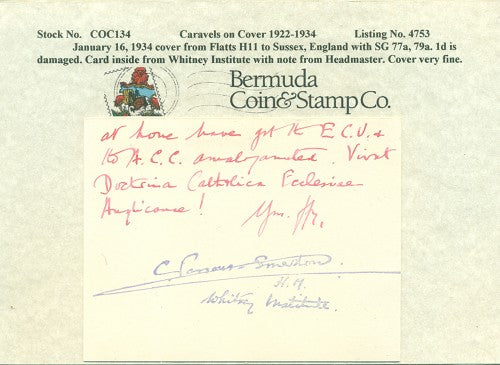 Stock No. COC134 Caravels on Cover 1922-1934 Listing No. 4753
January 16, 1934 cover from Flatts H11 to Sussex, England with SG 77a, 79a. 1d is
damaged. Card inside from Whitney Institute with note from Headmaster. Cover very fine.
Bermuda
Coin&Stamp Co.
at home have got the E.C.U. &
the A.C.C. amalgamated. Vivat
Doctrina Catholica Ecclesiae
Anglicanae!
C. Emerton.
H.M.
Whitney Institute.